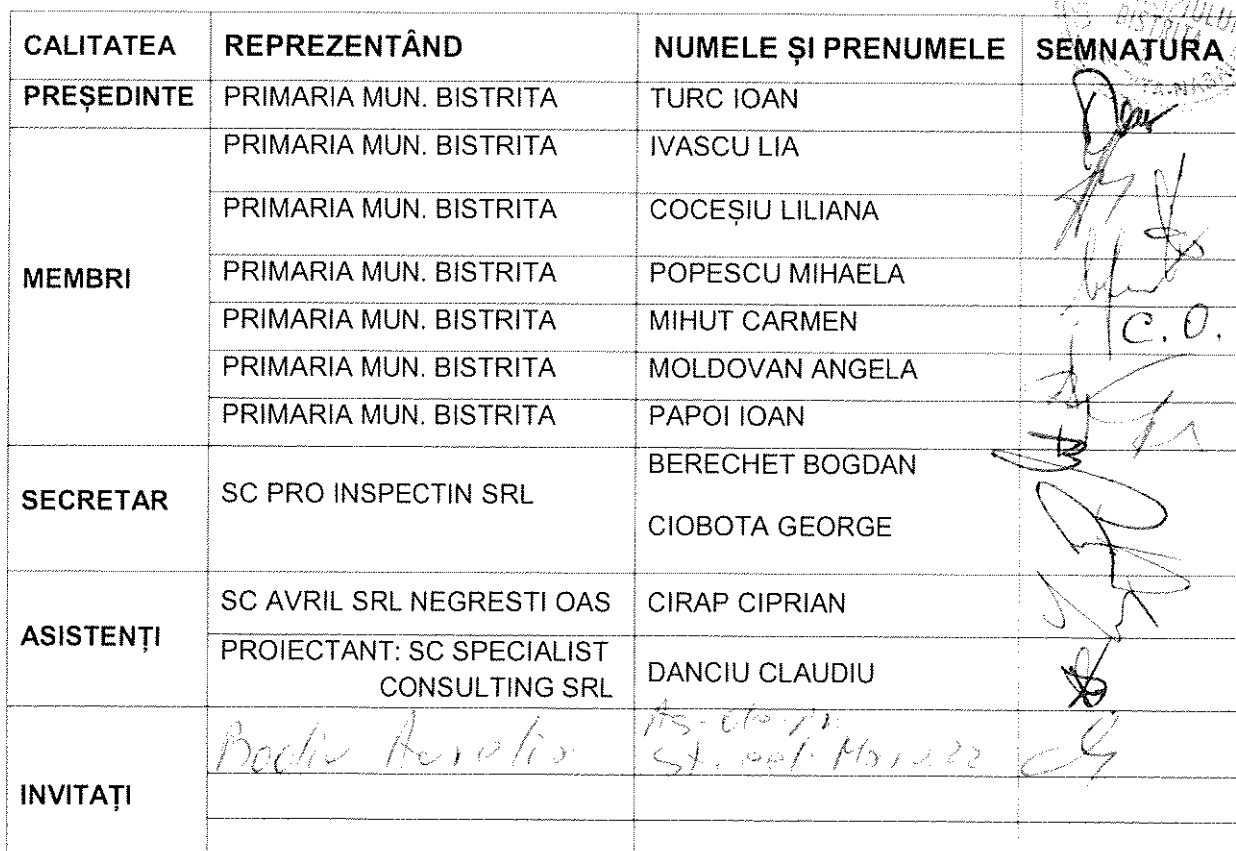 CALITATEA REPREZENTÂND NUMELE ȘI PRENUMELE SEMNATURA
PREȘEDINTE PRIMARIA MUN. BISTRITA TURC IOAN
PRIMARIA MUN. BISTRITA IVASCU LIA
PRIMARIA MUN. BISTRITA COCEȘIU LILIANA
MEMBRI PRIMARIA MUN. BISTRITA POPESCU MIHAELA
PRIMARIA MUN. BISTRITA MIHUT CARMEN C.O.
PRIMARIA MUN. BISTRITA MOLDOVAN ANGELA
PRIMARIA MUN. BISTRITA PAPOI IOAN
BERECHET BOGDAN
SECRETAR SC PRO INSPECTIN SRL
CIOBOTA GEORGE
SC AVRIL SRL NEGRESTI OAS CIRAP CIPRIAN
ASISTENȚI
PROIECTANT: SC SPECIALIST
CONSULTING SRL DANCIU CLAUDIU
INVITAȚI